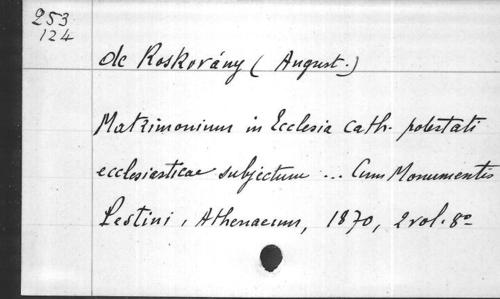 253
124
de Roskovány (August.)
Matrimonium in Ecclesia cath. potestati
ecclesiasticae subjectum ... Cum Monumentis
Pestini, Athenaeum, 1870, 2 vol. 8º